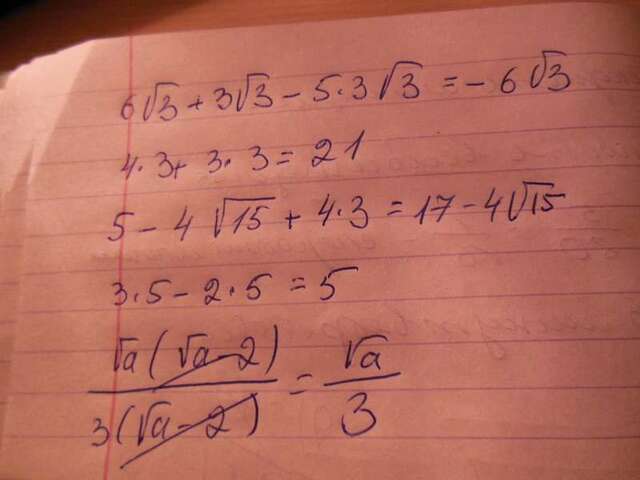 6√3 + 3√3 - 5·3√3 = -6√3
4·3 + 3·3 = 21
5 - 4√15 + 4·3 = 17 - 4√15
3·5 - 2·5 = 5
√a(√a - 2) / 3(√a - 2) = √a / 3